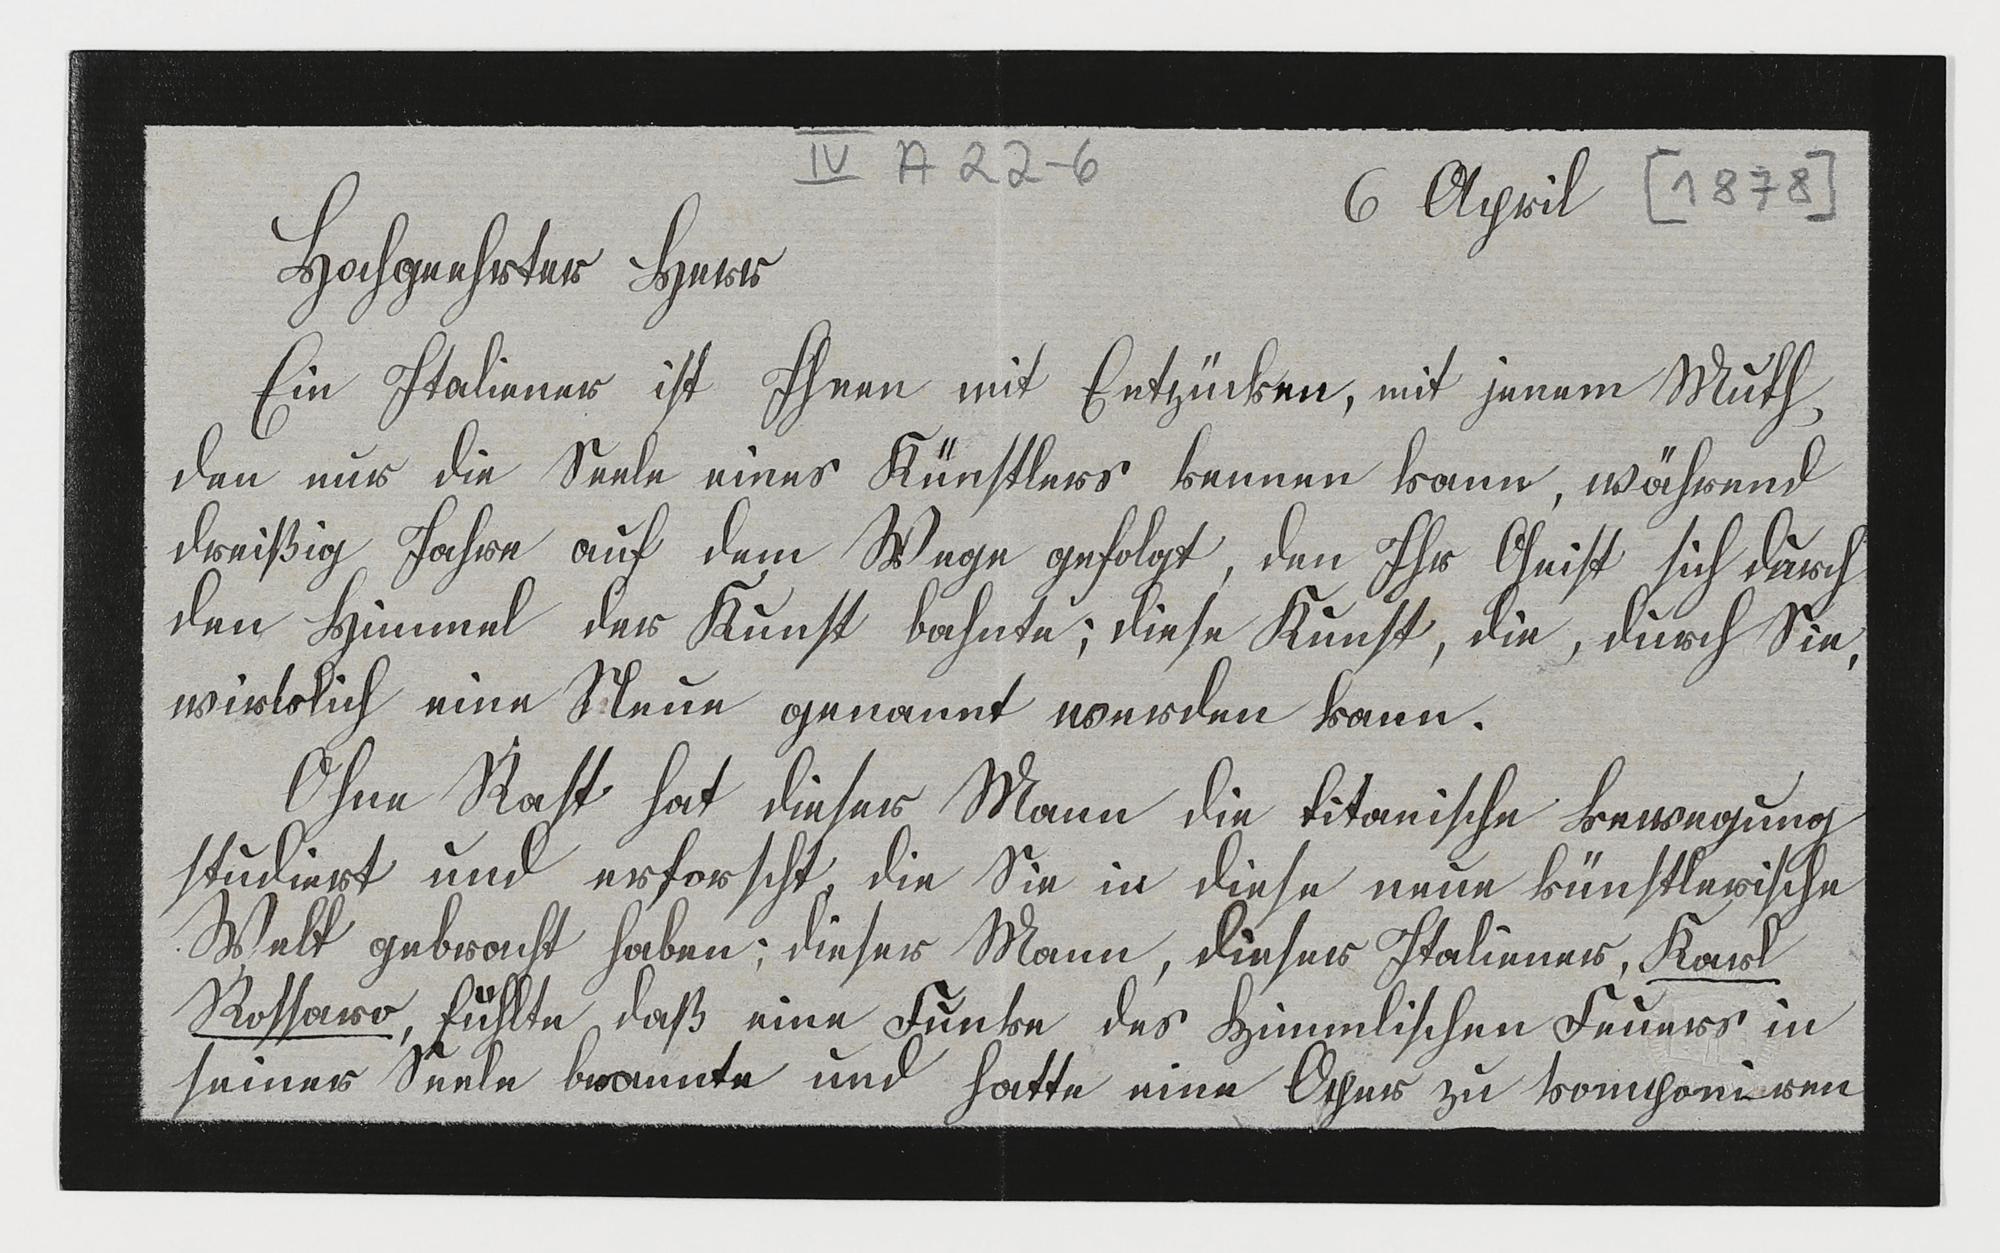 IV A 22-6
6 April [1878]
Hochgeehrter Herr
Ein Italiener ist Ihnen mit Entzücken, mit jenem Muth,
den nur die Seele eines Künstlers kennen kann, während
dreißig Jahre auf dem Wege gefolgt, den Ihr Geist sich durch
den Himmel der Kunst bahnte; diese Kunst, die, durch Sie,
wirklich eine Neue genannt werden kann.
Ohne Rast hat dieser Mann die titanische bewegung
studiert und erforscht, die Sie in diese neue künstlerische
Welt gebracht haben; dieser Mann, dieser Italiener, Karl
Rossaro, fühlte daß eine Funke des Himmlischen Feuers in
seiner Seele brannte und hatte eine Oper zu komponieren